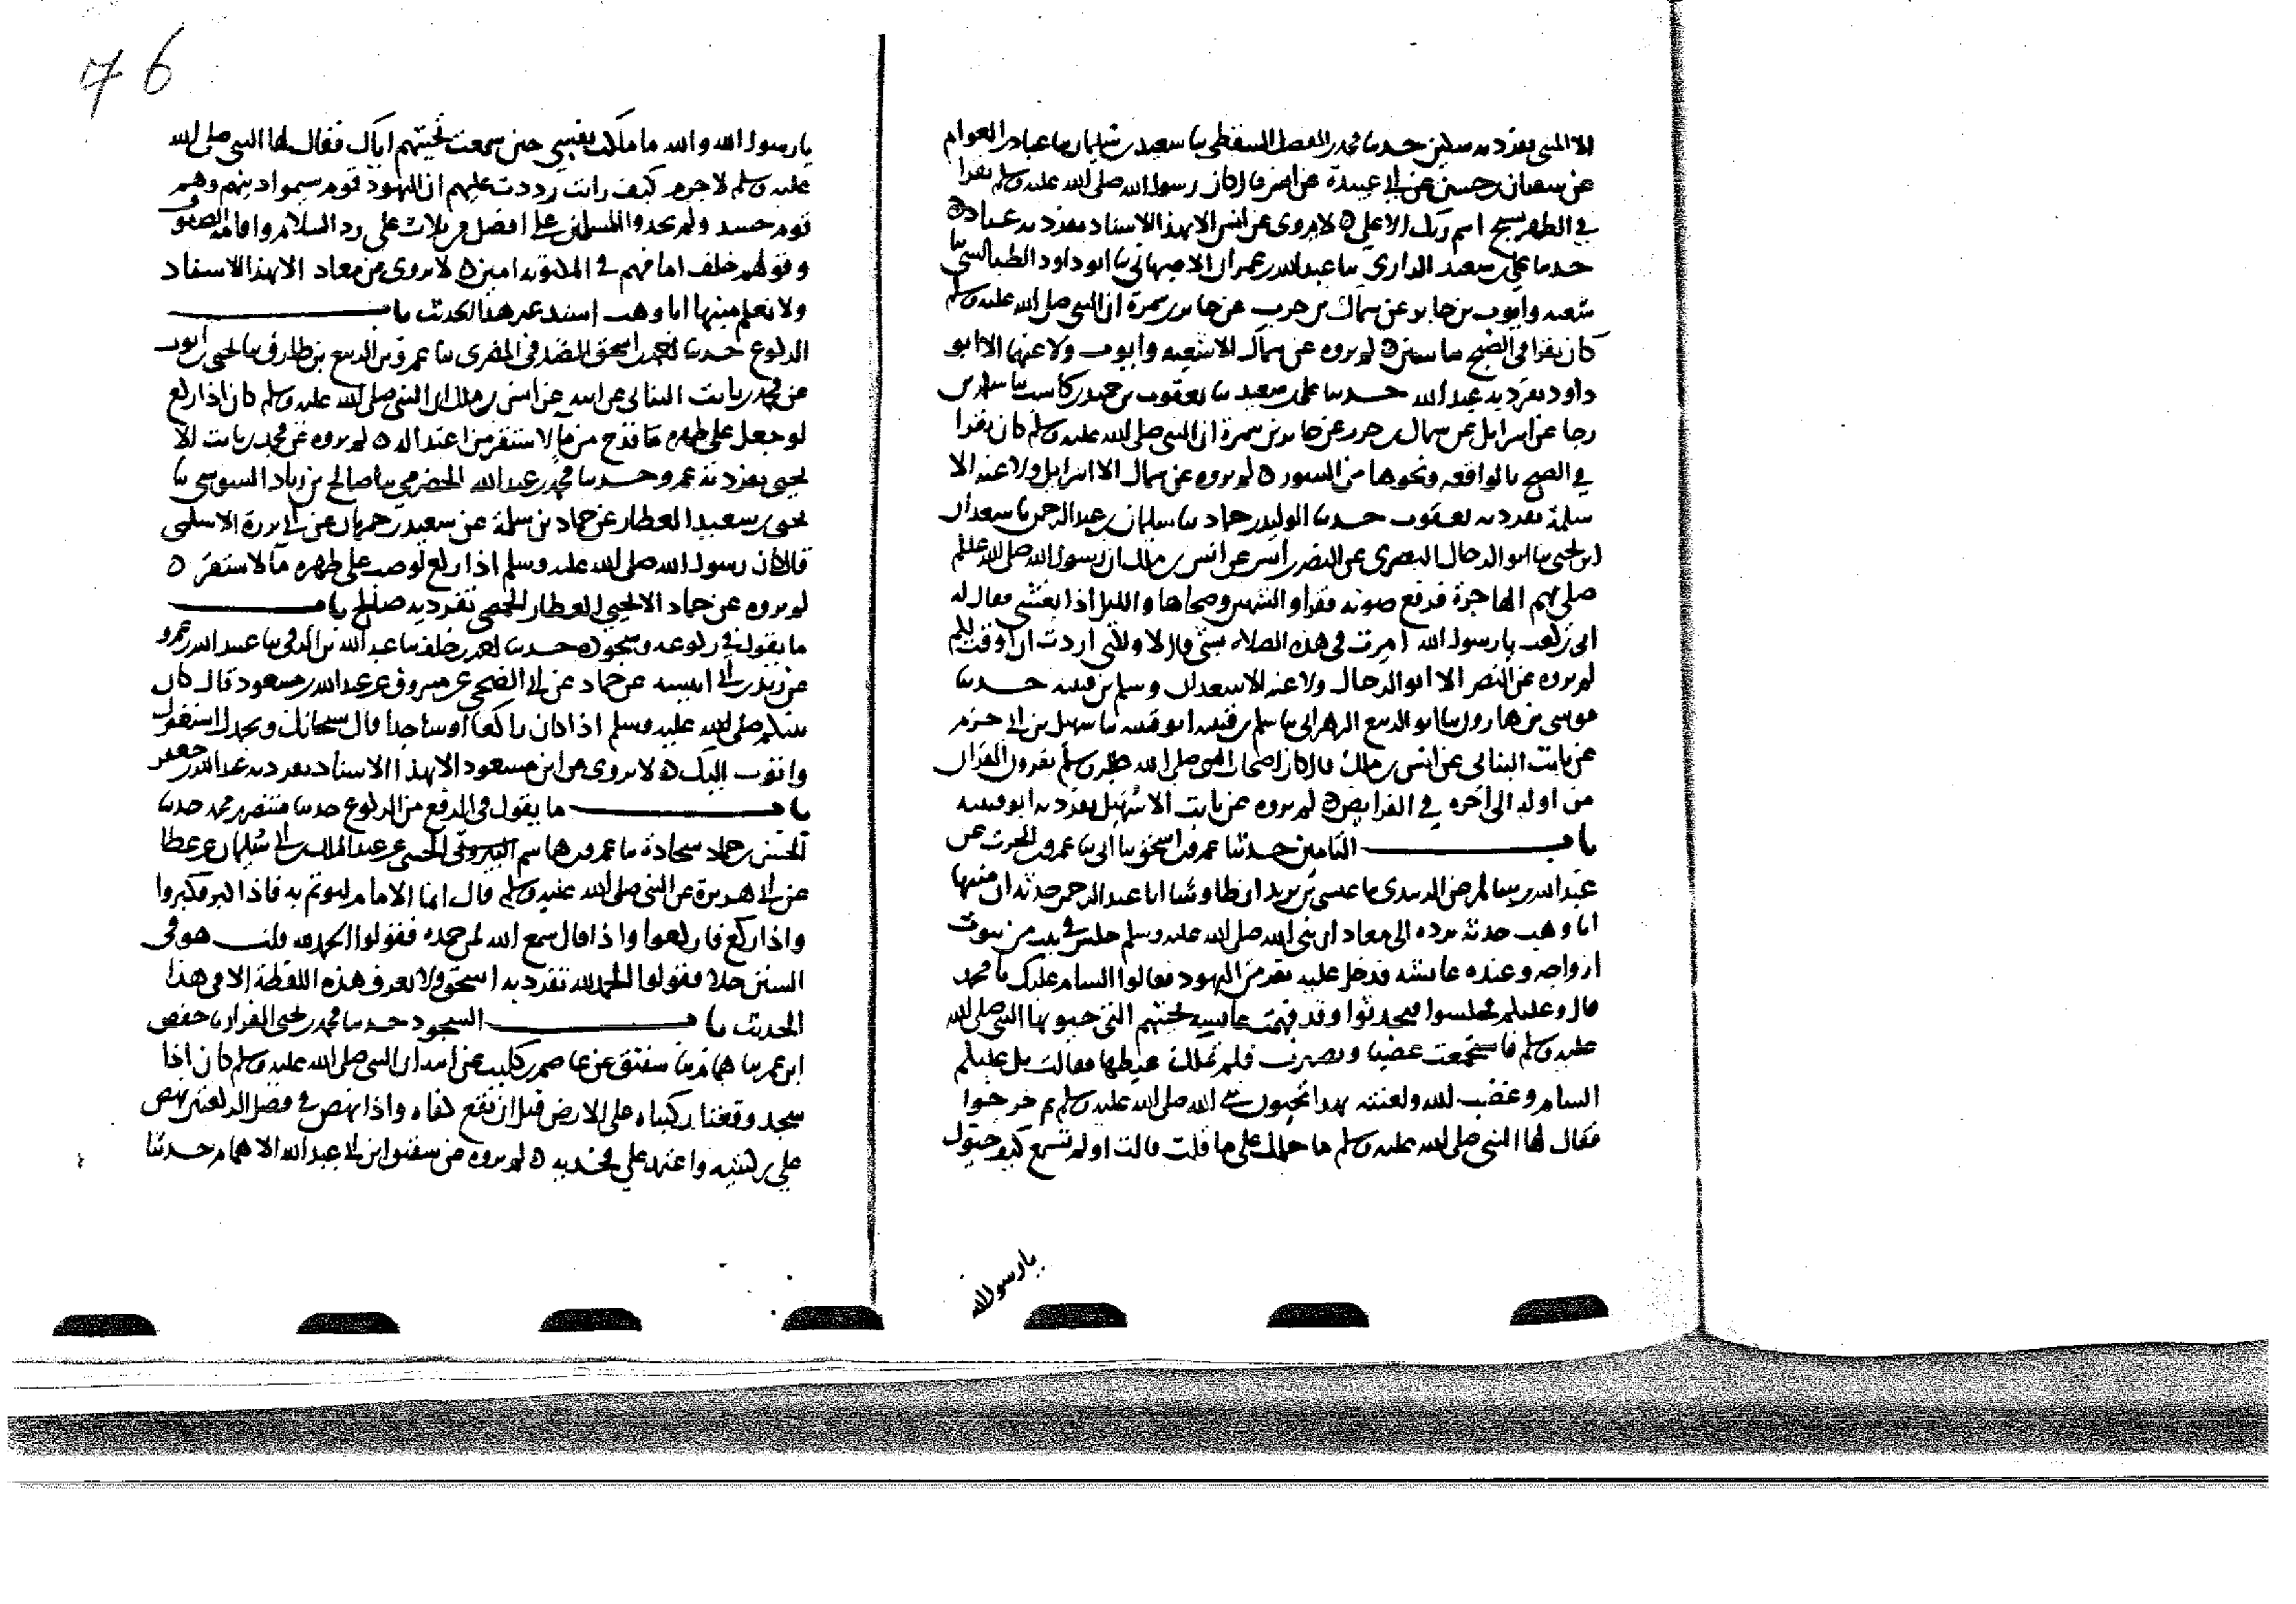 الا المثنى تفرد به سكين حدثنا محمد بن الفضل السقطي ثنا سعيد بن سليمان ثنا عباد بن العوام
عن سفيان بن حسين عن ابي عبيدة عن انس قال كان رسول الله صلى الله عليه وسلم يقرا
في الظهر سبح اسم ربك الاعلى ه لا يروى عن انس الا بهذا الاسناد تفرد به عباد ه
حدثنا علي بن سعيد الرازي ثنا عبد الله بن عمران الاصبهاني ثنا ابو داود الطيالسي ثنا
شعبه وايوب بن جابر عن سماك بن حرب عن جابر بن سمرة ان النبي صلى الله عليه وسلم
كان يقرا في الصبح بياسين ه لم يروه عن سماك الا شعبه وايوب ولا عنهما الا ابو
داود تفرد به عبد الله حدثنا علي بن سعيد ثنا يعقوب بن حميد بن كاسب ثنا سلمة بن
رجا عن اسرائيل عن سماك بن حرب عن جابر بن سمرة ان النبي صلى الله عليه وسلم كان يقرا
في الصبح بالواقعه ونحوها من السور ه لم يروه عن سماك الا اسرائيل ولا عنه الا
سلمة تفرد به يعقوب حدثنا الوليد بن حماد ثنا سليمان بن عبد الرحمن ثنا سعدان
ابن يحيى ثنا ابو الرحال البصري عن النضر بن انس عن انس بن مالك ان رسول الله صلى الله عليه وسلم
صلى بهم الهاجرة فرفع صوته فقرا والشمس وضحاها والليل اذا يغشى فقال له
ابي بن كعب يا رسول الله امرت في هذه الصلاه بشي قال لا ولكني اردت ان اوقت لكم
لم يروه عن النضر الا ابو الرحال ولا عنه الا سعدان وسلم بن قتيبه حدثنا
موسى بن هارون ثنا ابو الربيع الزهراني ثنا سلم بن قتيبه ابو قتيبه ثنا سهيل بن ابي حزم
عن ثابت البناني عن انس بن مالك قال كان اصحاب النبي صلى الله عليه وسلم يقرون القران
من اوله الى اخره في الفرايض ه لم يروه عن ثابت الا سهيل تفرد به ابو قتيبه
باب التامين حدثنا عمرو بن اسحق ثنا ابي ثنا عمرو بن الحرث عن
عبد الله بن سالم عن الزبيدي ثنا عيسى بن يزيد ان طاوسا ابا عبد الرحمن حدثه ان منبها
ابا وهب حدثه يرده الى معاذ ان نبي الله صلى الله عليه وسلم جلس في بيت من بيوت
ازواجه وعنده عائشه فدخل عليه نفر من اليهود فقالوا السام عليك يا محمد
قال وعليكم فجلسوا فتحدثوا وقد فهمت عائشه تحيتهم التي حيوا بها النبي صلى الله
عليه وسلم فاستجمعت غضبا وتصبرت فلم تملك غيظها فقالت بل عليكم
السام وغضب الله ولعنته بهذا تحيون نبي الله صلى الله عليه وسلم ثم خرجوا
فقال لها النبي صلى الله عليه وسلم ما حملك على ما قلت قالت اولم تسمع كيف حيوك
يا رسول الله
76
يا رسول الله والله ما ملكت نفسي حين سمعت تحيتهم اياك فقال لها النبي صلى الله
عليه وسلم لا جرم كيف رايت رددت عليهم ان اليهود قوم سيموا دينهم وهم
قوم حسد ولم يحسدوا المسلمين على افضل من ثلاث على رد السلام واقامه الصفوف
وقولهم خلف امامهم في المكتوبه امين ه لا يروى عن معاذ الا بهذا الاسناد
ولا نعلم منبها ابا وهب اسند غير هذا الحديث باب
الركوع حدثنا احمد بن اسحق الصدفي المصري ثنا عمرو بن الربيع بن طارق ثنا يحيى بن ايوب
عن محمد بن ثابت البناني عن ابيه عن انس بن مالك ان النبي صلى الله عليه وسلم كان اذا ركع
لو جعل على ظهره قدح من ما لاستقر من اعتداله ه لم يروه عن محمد بن ثابت الا
يحيى تفرد به عمرو حدثنا محمد بن عبد الله الحضرمي ثنا صالح بن زياد السوسي ثنا
يحيى بن سعيد العطار عن حماد بن سلمة عن سعيد بن جمهان عن ابي برزة الاسلمي
قال كان رسول الله صلى الله عليه وسلم اذا ركع لو صب على ظهره ما لاستقر ه
لم يروه عن حماد الا يحيى العطار الحمصي تفرد به صالح باب
ما يقول في ركوعه وسجوده حدثنا احمد بن خلف ثنا عبد الله بن الرقي ثنا عبيد الله بن عمرو
عن زيد بن ابي انيسه عن حماد عن ابي الضحى عن مسروق عن عبد الله بن مسعود قال كان
نبيكم صلى الله عليه وسلم اذا كان راكعا او ساجدا قال سبحانك وبحمدك استغفرك
واتوب اليك ه لا يروى عن ابن مسعود الا بهذا الاسناد تفرد به عبد الله بن جعفر
باب ما يقول في الرفع من الركوع حدثنا منتصر بن محمد حدثنا
الحسن بن حماد سجادة ثنا عمرو بن هاشم البيروتي الجنبي عن عبد الملك بن ابي سليمان عن عطا
عن ابي هريرة عن النبي صلى الله عليه وسلم قال انما الامام ليوتم به فاذا كبر فكبروا
واذا ركع فاركعوا واذا قال سمع الله لمن حمده فقولوا الحمد لله قلت هو في
السنن خلا فقولوا الحمد لله تفرد به اسحق ولا نعرف هذه اللفظة الا في هذا
الحديث باب السجود حدثنا محمد بن يحيى القزاز ثنا حفص
ابن عمر ثنا همام ثنا سفين عن عاصم بن كليب عن ابيه ان النبي صلى الله عليه وسلم كان اذا
سجد وقعتا ركبتاه على الارض قبل ان تقع كفاه واذا نهض في فصل الركعتين نهض
على ركبتيه واعتمد على فخذيه ه لم يروه عن سفين ابن ابي عبد الله الا همام حدثنا